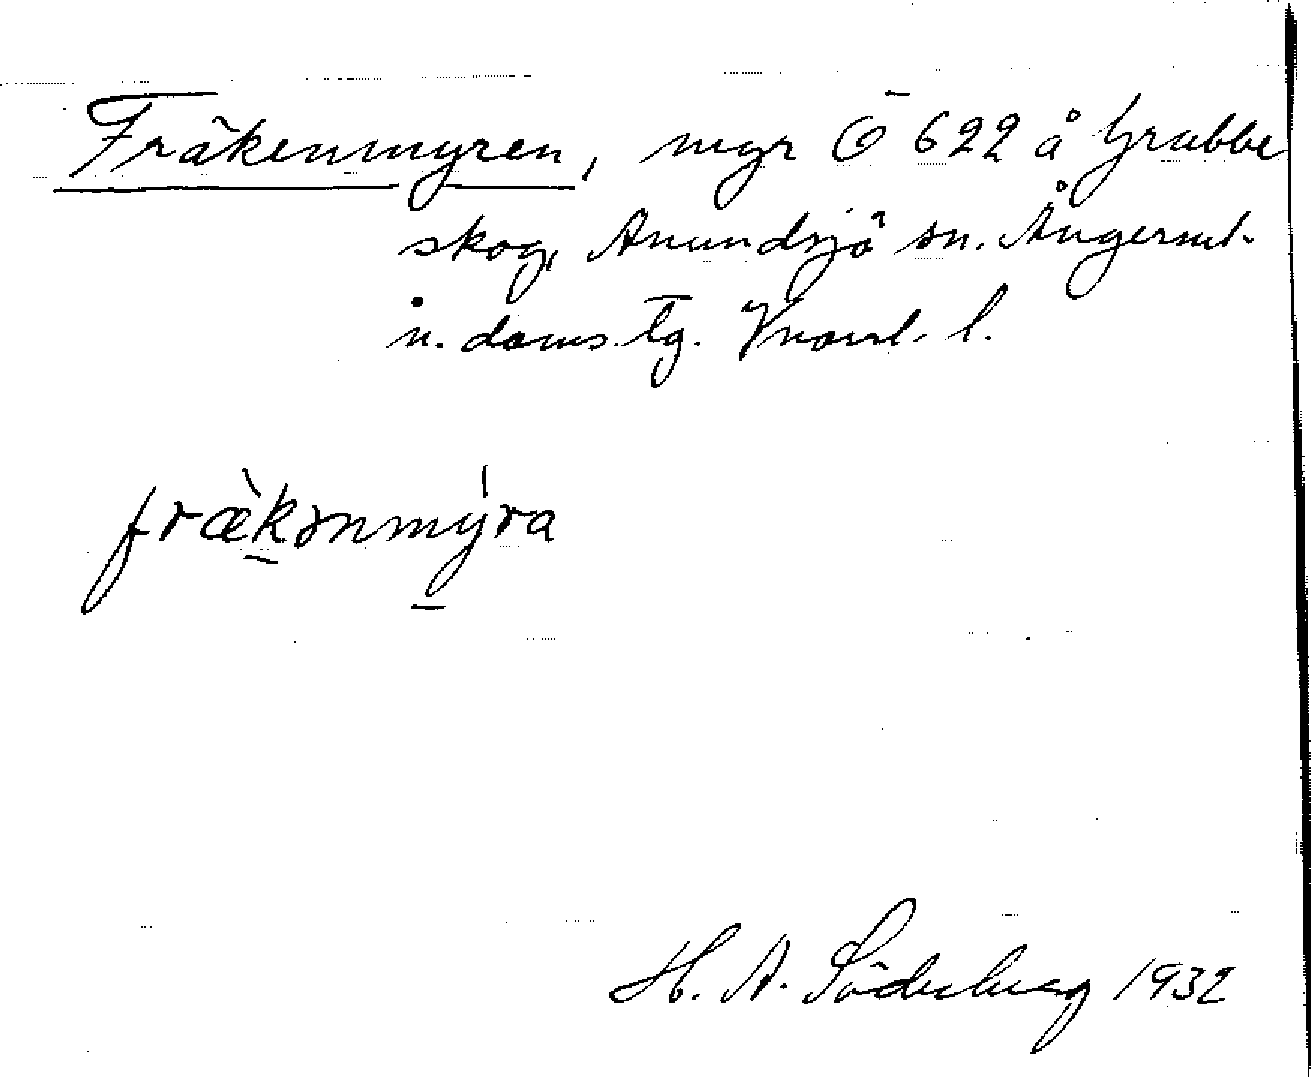 Fräkenmyren, myr Ö 622 å Grubbe
skog, Anundsjö sn. Ångerml.
n. doms. tg. Vnorrl. l.
frækənmýra
H. A. Söderberg 1932